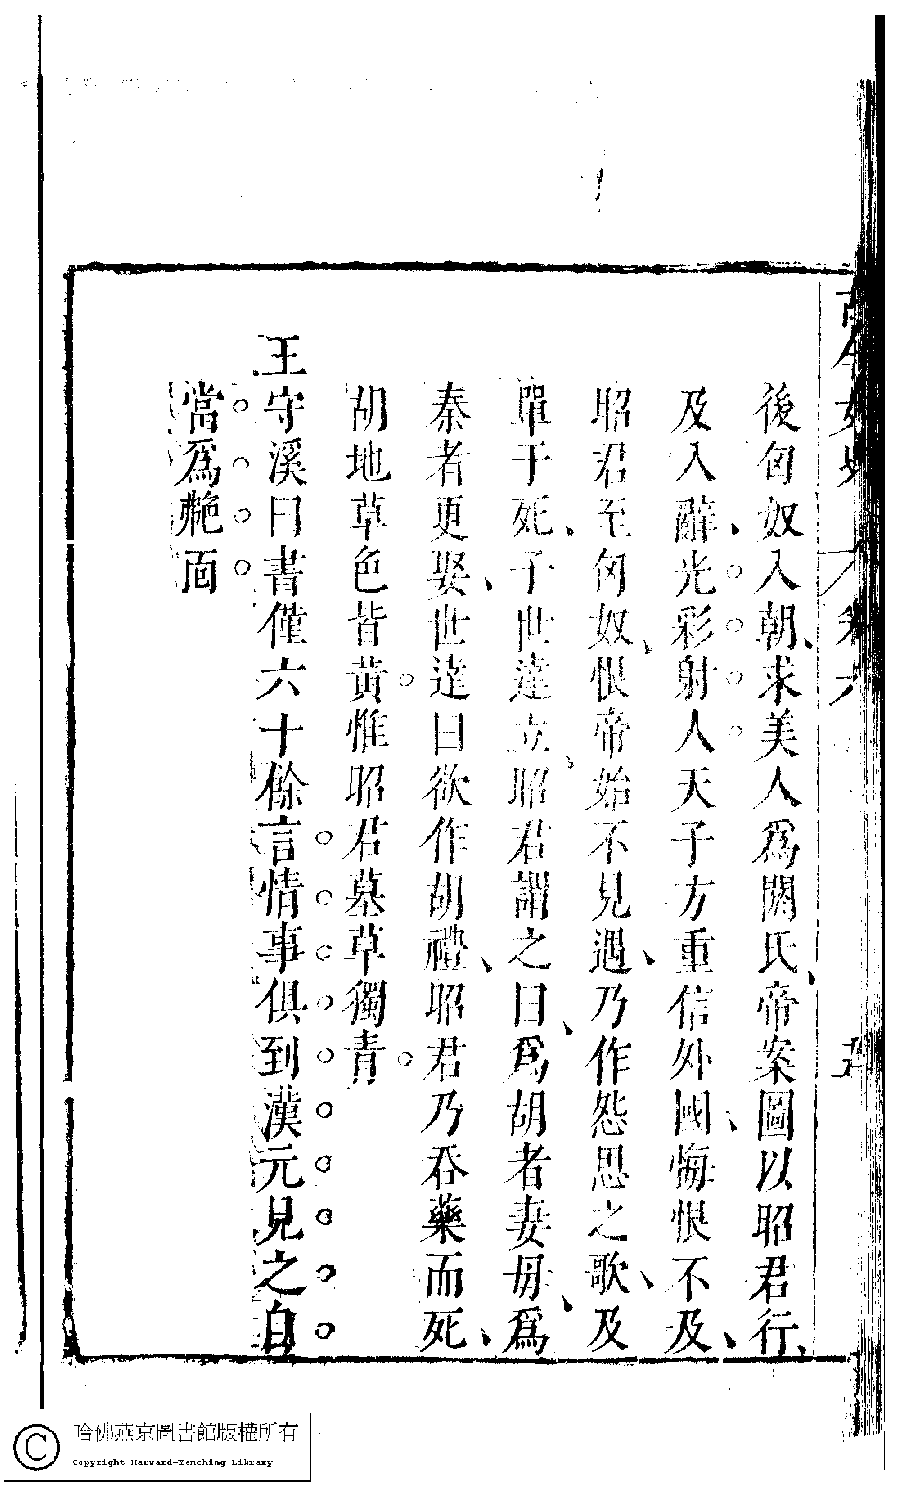 古今女史 卷六
後匈奴入朝求美人爲閼氏帝案圖以昭君行
及入辭光彩射人天子方重信外國悔恨不及
昭君至匈奴恨帝始不見遇乃作怨思之歌及
單于死子世達立昭君謂之曰爲胡者妻母爲
秦者更娶世達曰欲作胡禮昭君乃吞藥而死
胡地草色皆黃惟昭君墓草獨青
王守溪曰書僅六十餘言情事俱到漢元見之自
當爲赩面
哈佛燕京圖書館版權所有
Copyright Harvard-Yenching Library